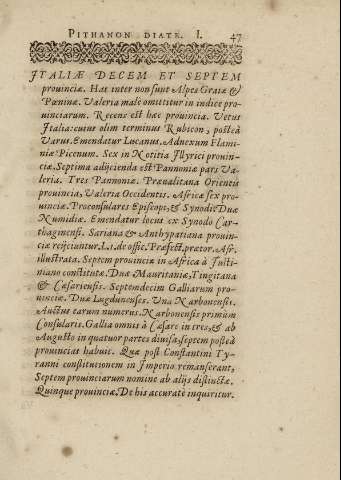 PITHANON DIATE. I. 47
ITALIÆ DECEM ET SEPTEM
prouinciæ. Has inter non sunt Alpes Graiæ &
Pœninæ. Valeria male omittitur in indice pro-
uinciarum. Recens est hæc prouincia. Vetus
Italia: cuius olim terminus Rubicon, posteà
Varus. Emendatur Lucanus. Adnexum Flami-
niæ Picenum. Sex in Notitia Illyrici prouin-
ciæ. Septima adijcienda est Pannoniæ pars Va-
leria. Tres Pannoniæ. Præualitana Orientis
prouincia, Valeria Occidentis. Africæ sex pro-
uinciæ. Proconsulares Episcopi, & Synodi. Duæ
Numidiæ. Emendatur locus ex Synodo Car-
thaginensi. Sariana & Anthypatiana prouin-
ciæ reijciuntur. L.i. de offic. Præfect. prætor. Afr.
illustrata. Septem prouinciæ in Africa à Iusti-
niano constitutæ. Duæ Mauritaniæ, Tingitana
& Cæsariensis. Septendecim Galliarum pro-
uinciæ. Duæ Lugdunenses. Vna Narbonensis.
Auctus earum numerus. Narbonensis primùm
Consularis. Gallia omnis à Cæsare in tres, & ab
Augusto in quatuor partes diuisa, septem posteà
prouincias habuit. Quæ post Constantini Ty-
ranni constitutionem in Imperio remanserant,
Septem prouinciarum nomine ab alijs distinctæ.
Quinque prouinciæ. De his accuratè inquiritur.